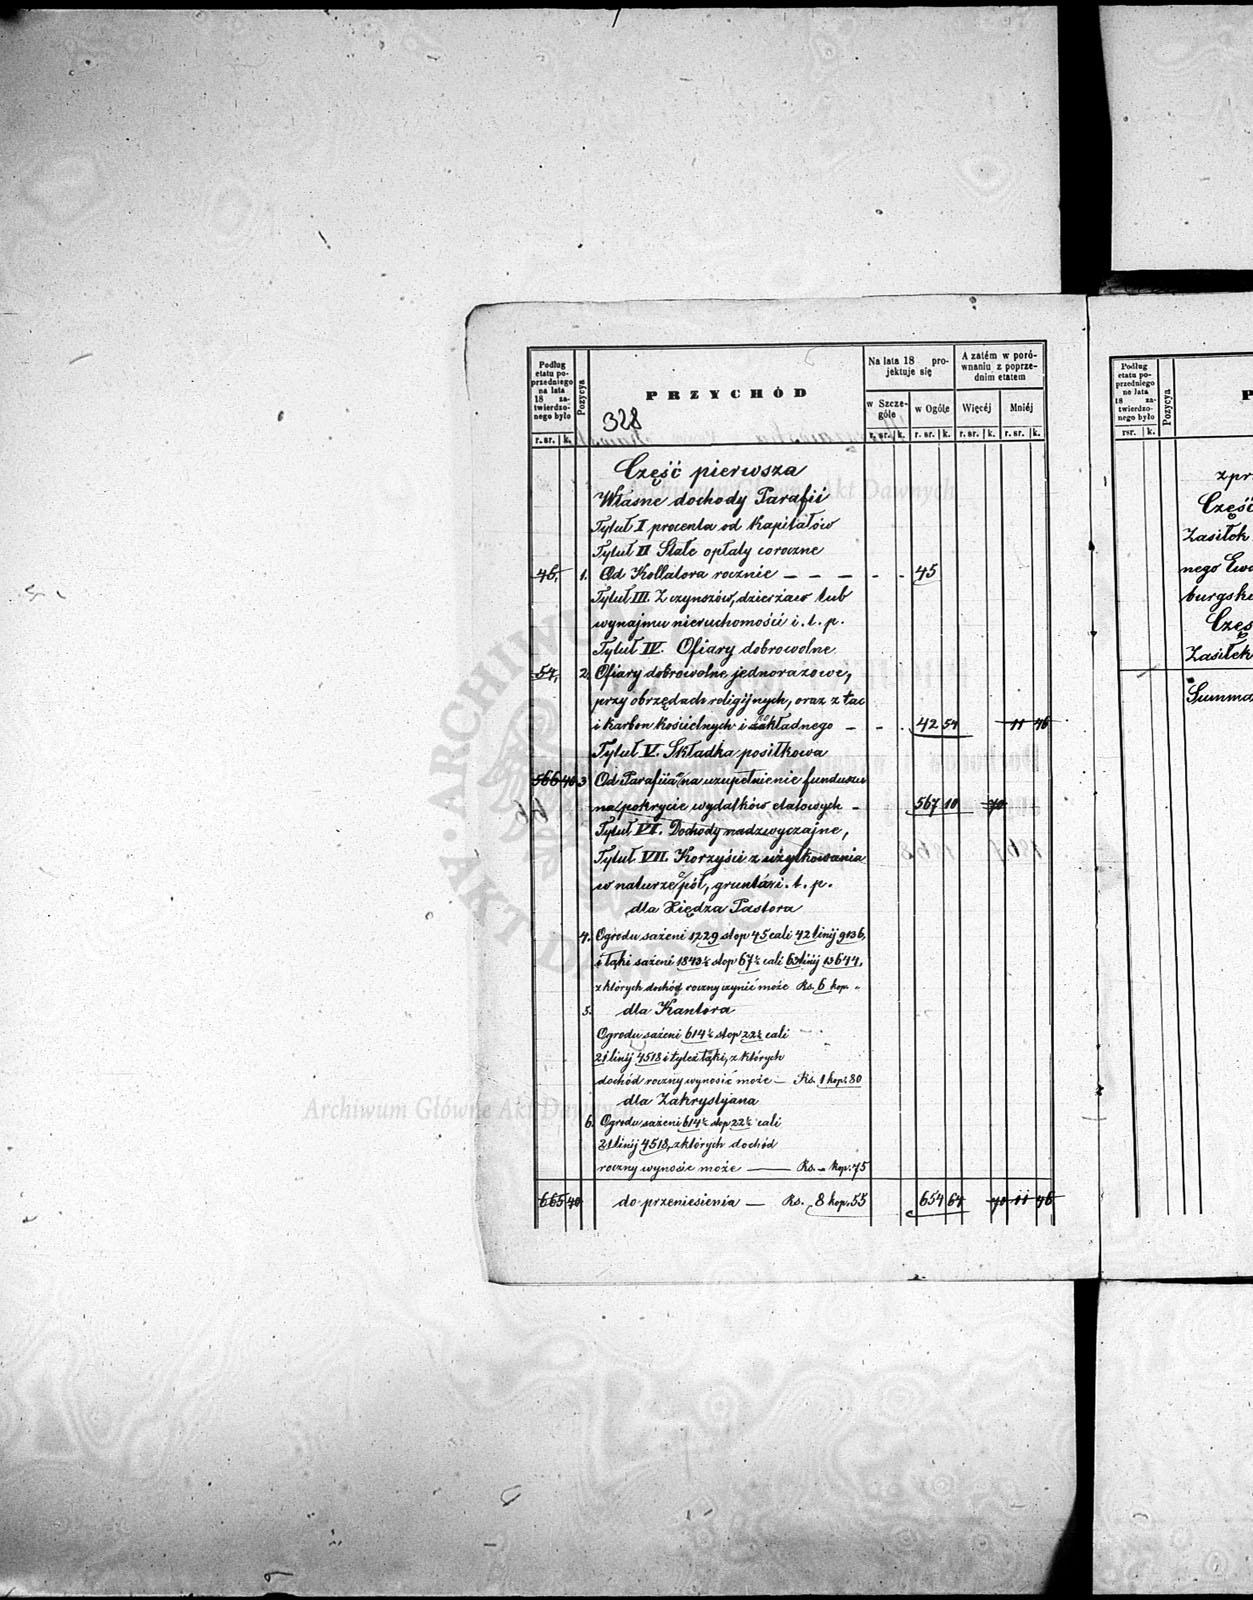 Podług
etatu po-
przedniego
na lata
18 za-
twierdzo-
nego było
r. sr. k.
Pozycya
PRZYCHÓD
328
Na lata 18 pro-
jektuje się
w Szcze-
góle
w Ogóle
r. sr. k. r. sr. k.
A zatém w poró-
wnaniu z poprze-
dnim etatem
Więcéj Mniéj
r. sr. k. r. sr. k.
Część pierwsza
Własne dochody Parafii
Tytuł I procenta od Kapitałów
Tytuł II Stałe opłaty coroczne
45, 1. Od Kollatora rocznie — — — - - 45
Tytuł III. Z czynszów, dzierżaw lub
wynajmu nieruchomości i. t. p.
Tytuł IV. Ofiary dobrowolne
54, 2. Ofiary dobrowolne jednorazowe,
przy obrzędach religijnych, oraz z tac
i karbon kościelnych i zakładnego - - . 42 54 11 46
Tytuł V. Składka posiłkowa
566 40 3 Od Parafii na uzupełnienie funduszu
na pokrycie wydatków etatowych - 567 10 70
Tytuł VI. Dochody nadzwyczajne,
Tytuł VII. Korzyści z użytkowania
w naturze pól, gruntów i. t. p.
dla Księdza Pastora
4. Ogrodu sażeni 1229 stop 45 cali 42 linij 9136,
i łąki sażeni 1843½ stop 67½ cali 63 linij 13644,
z których dochód roczny czynić może Rs. 6 kop. "
5. dla Kantora
Ogrodu sażeni 614½ stop 22½ cali
21 linij 4518 i tyleż łąki, z których
dochód roczny wynosić może — Rs. 1 kop. 80
dla Zakrystyana
6. Ogrodu sażeni 614½ stop 22½ cali
21 linij 4518, z których dochód
roczny wynosić może — Rs. - kop. 75
665 40 do przeniesienia — Rs. 8 kop. 55 654 64 70 11 46
Podług
etatu po-
przedniego
na lata
18 za-
twierdzo-
nego było
rsr. k.
Pozycya
P
zpr
Część
Zasiłek
nego Ewa
burgski
Częs
Zasiłek
Summa
Archiwum Główne Akt Dawnych
ARCHIWUM
AKT DAW
Archiwum Główne Akt Dawnych